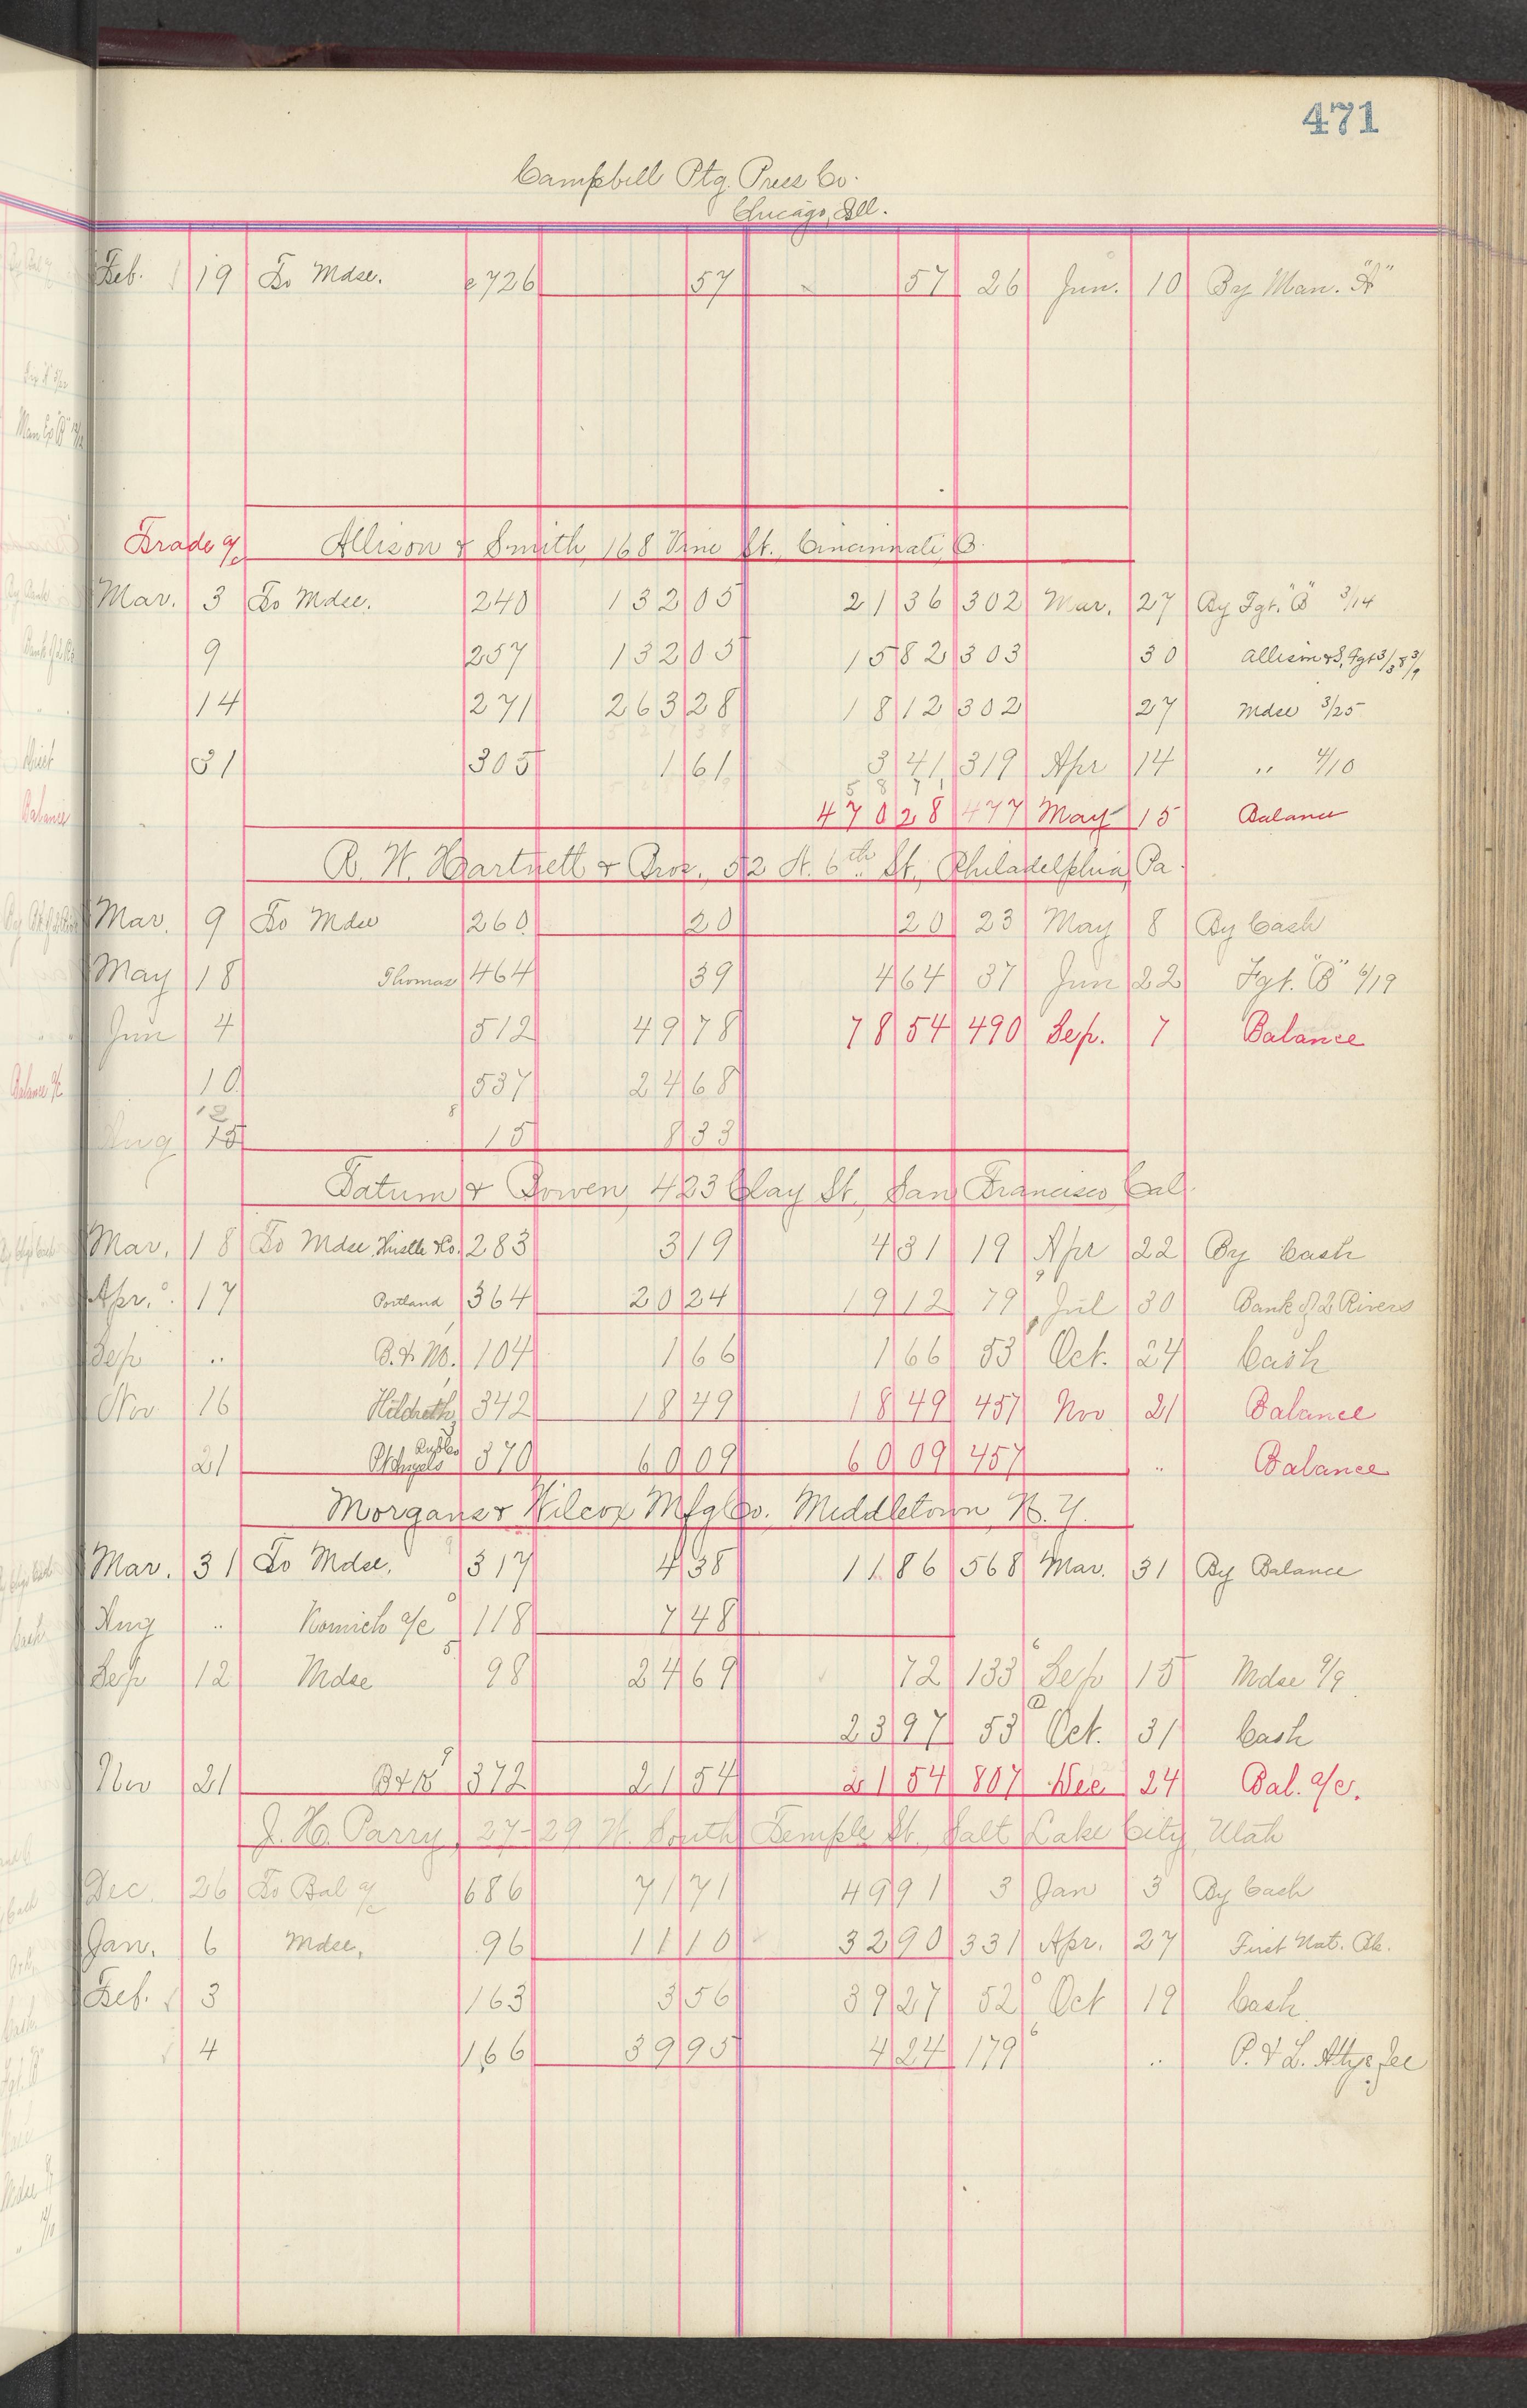 471
Campbell Ptg. Press Co.
Chicago, Ill.
Feb. 19 To Mdse. e726 57 57 26 Jun. 10 By Man. "A"
Trade a/c Allison & Smith, 168 Vine St., Cincinnati, O.
Mar. 3 To Mdse. 240 132 05 21 36 302 Mar. 27 By Fgt. "B" 3/14
9 257 132 05 15 82 303 30 Allison & S. Fgt 3/3 & 3/9
14 271 263 28 18 12 302 27 Mdse 3/25
31 305 1 61 3 41 319 Apr 14 " 4/10
5 8 7 1
470 28 477 May 15 Balance
R. W. Hartnett & Bros., 52 N. 6th St., Philadelphia, Pa.
Mar. 9 To Mdse 260 20 20 23 May 8 By Cash
May 18 Thomas 464 39 4 64 37 Jun 22 Fgt. "B" 6/19
Jun 4 512 49 78 78 54 490 Sep. 7 Balance
10 537 24 68
12
Aug 15 8 15 8 33
Tatum & Bowen, 423 Clay St., San Francisco Cal.
Mar. 18 To Mdse. 283 3 19 4 31 19 Apr 22 By Cash
Apr. 17 Portland 364 20 24 19 12 79 9 Jul 30 Bank of 2 Rivers
Sep " B. & No. 104 1 66 1 66 53 Oct. 24 Cash
Nov 16 Hildreth 342 18 49 18 49 457 Nov 21 Balance
21 370 60 09 60 09 457 " Balance
Morgans & Wilcox Mfg Co. Middletown, N. Y.
Mar. 31 To Mdse. 317 4 38 11 86 568 Mar. 31 By Balance
Aug " a/c 118 7 48
Sep 12 Mdse 5 98 24 69 72 133 6 Sep 15 Mdse 9/9
23 97 53 Oct. 31 Cash
Nov 21 B & K 9 372 21 54 21 54 807 Dec 24 Bal. a/c.
J. H. Parry, 27-29 W. South Temple St., Salt Lake City, Utah
Dec. 26 To Bal a/c 686 71 71 49 91 3 Jan 3 By Cash
Jan. 6 Mdse. 96 11 10 32 90 331 Apr. 27 First Nat. Bk.
Feb. 3 163 3 56 39 27 52 0 Oct 19 Cash
4 166 39 95 4 24 179 6 " P. & L. Attys fee